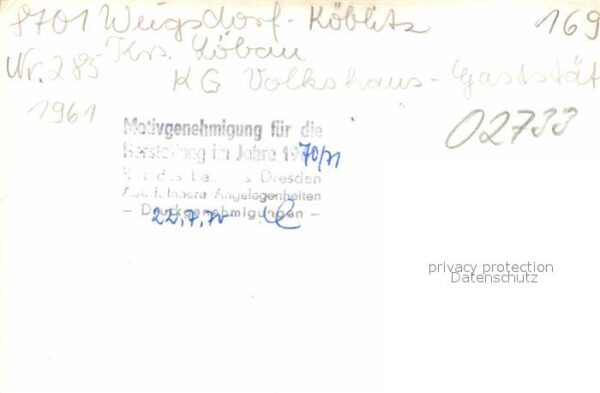 8701 Weigsdorf-Köblitz 169
Krs. Löbau
Nr. 285 KG Volkshaus-Gaststät
1961
02733
Motivgenehmigung für die
Herstellung im Jahre 1970/71
Rat des Bezirkes Dresden
Abt. f. Innere Angelegenheiten
- Druckgenehmigungen -
22.7.70
privacy protection
Datenschutz